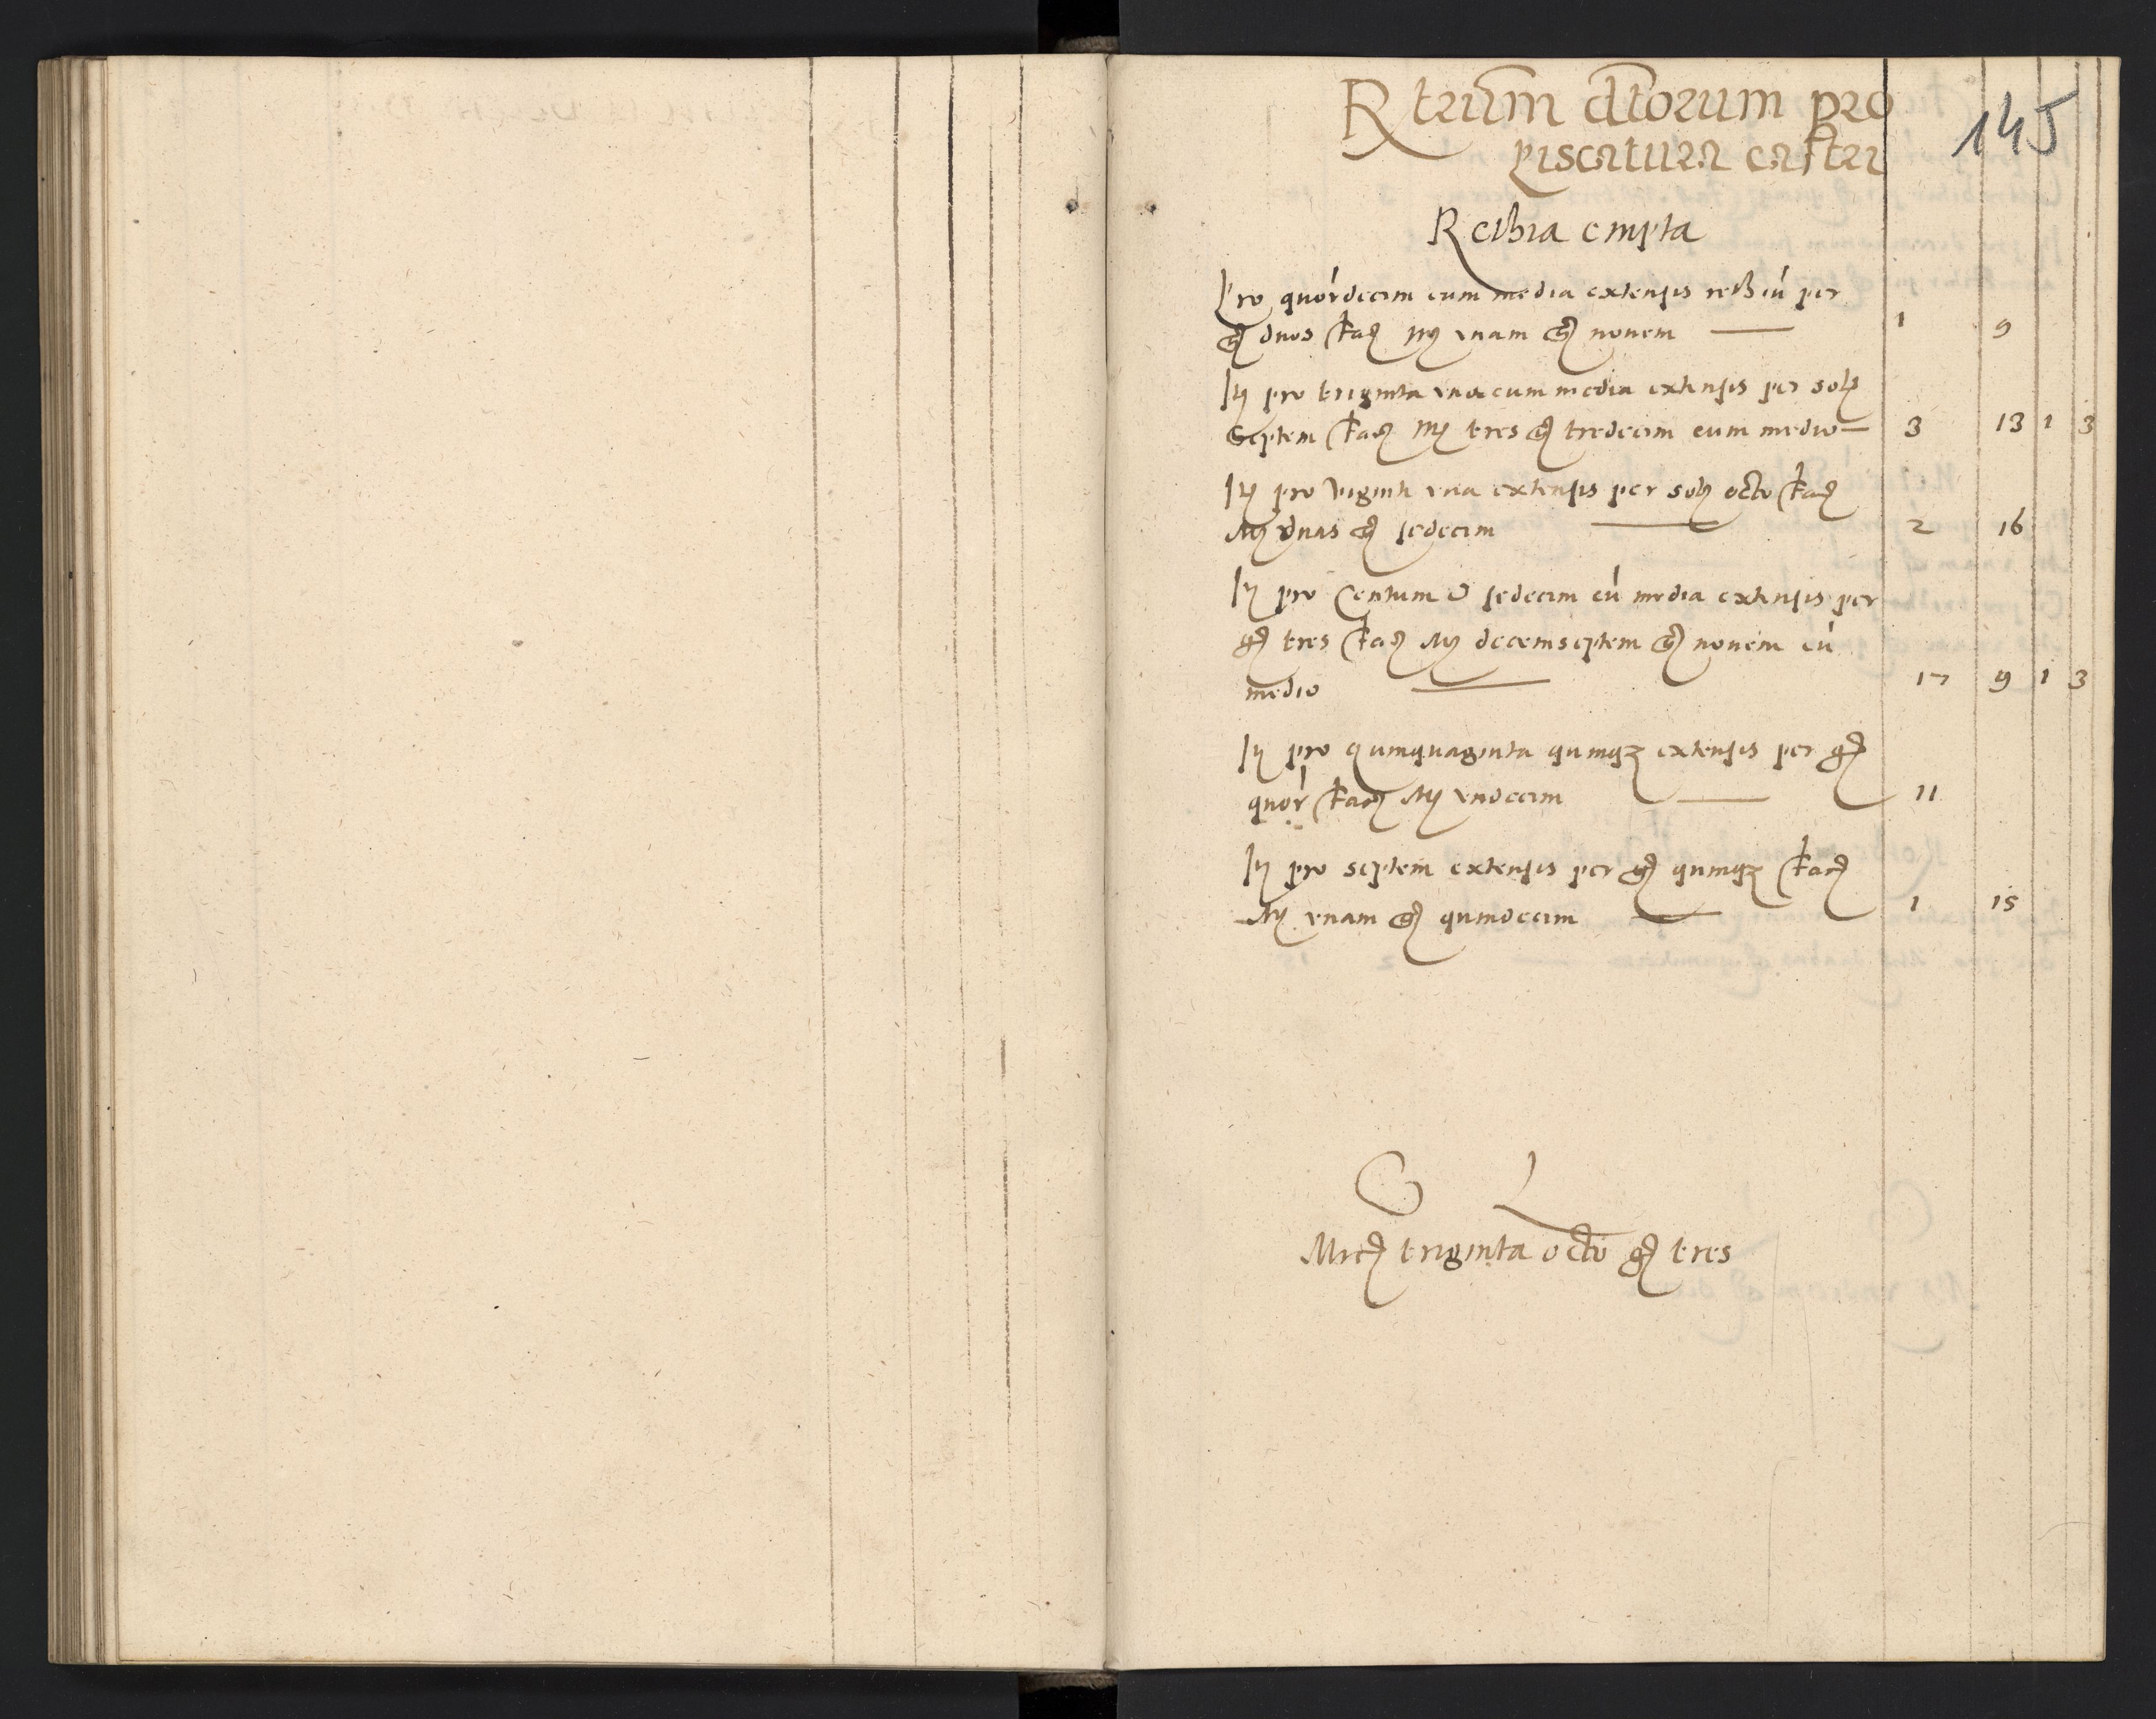 Retium diorum pro
piscatura castri
145
Rethia empta
Pro quordecim cum media extensis reth cu per
g duos facit Mr unam g novem 1 9
It pro triginta una cum media extensis per sol
Septem facit Mr tres g tredecim cum medio 3 13 1 3
It pro viginti una extensis per sol octo facit
Mr duas g sedecim 2 16
It pro Centum et sedecim cu media extensis per
g tres facit Mr decemseptem g novem cu
medio 17 9 1 3
It pro quinquaginta quinq extensis per g
quor facit Mr undecim 11
It pro septem extensis per g quinq facit
Mr unam g quindecim 1 15
Mrc triginta octo g tres